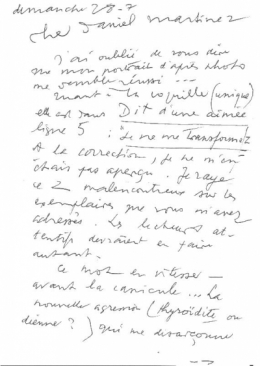 dimanche 28-7
che Daniel Martinez
j'ai oublié de vous dire
que mon portrait d'après photo
me semble réussi ---
Quant à la coquille (unique)
elle est dans Dit d'une aimée
ligne 5 : Je me me transforme
A la correction, je ne m'en
étais pas aperçu. Je raye
ce 2 malencontreux sur les
exemplaires que vous m'avez
adressés. Les lecteurs at-
tentifs devraient en faire
autant.
Ce mot en vitesse —
avant la canicule... La
nouvelle agression (thyroïdite ou
dienne ?) qui me désarçonne